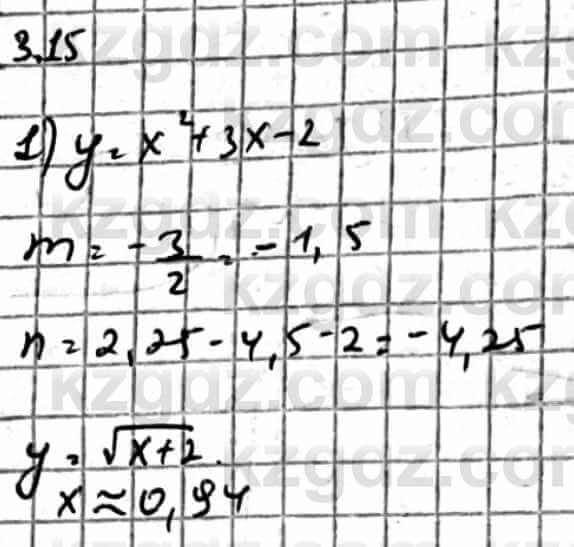 3.15
1) y = x² + 3x - 2
m = - 3/2 = - 1,5
n = 2,25 - 4,5 - 2 = - 4,25
y = √x+2
x ≈ 0,94
kzgdz.com